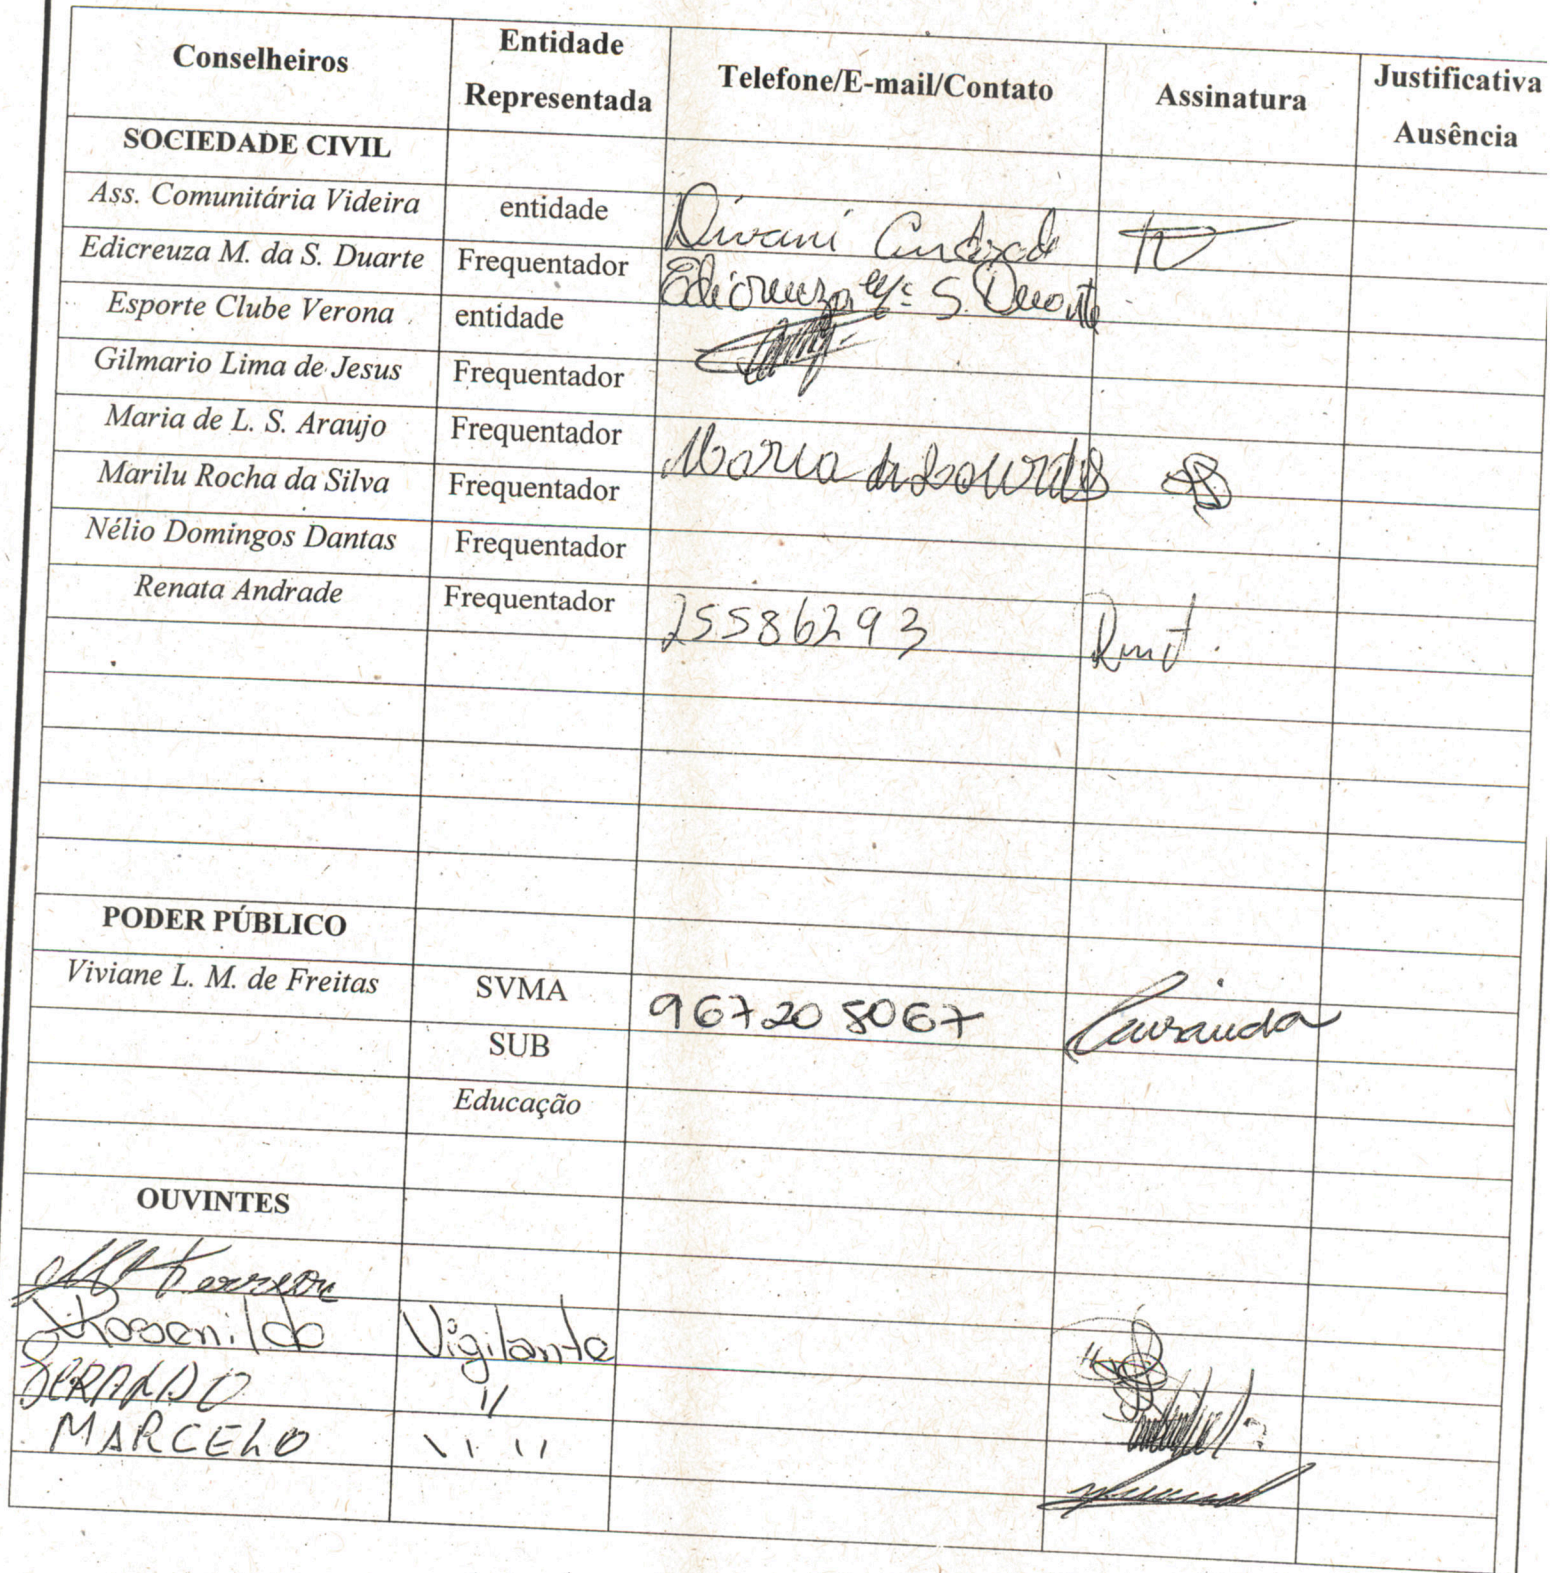 Conselheiros Entidade Representada Telefone/E-mail/Contato Assinatura Justificativa Ausência
SOCIEDADE CIVIL
Ass. Comunitária Videira entidade Divani Andrade
Edicreuza M. da S. Duarte Frequentador Edicreuza Mª S. Duarte
Esporte Clube Verona entidade
Gilmario Lima de Jesus Frequentador
Maria de L. S. Araujo Frequentador Maria de Lourdes
Marilu Rocha da Silva Frequentador
Nélio Domingos Dantas Frequentador
Renata Andrade Frequentador 25586293
PODER PÚBLICO
Viviane L. M. de Freitas SVMA 967208067
SUB
Educação
OUVINTES
Rosenildo Vigilante
GERALDO 11
MARCELO 11 11